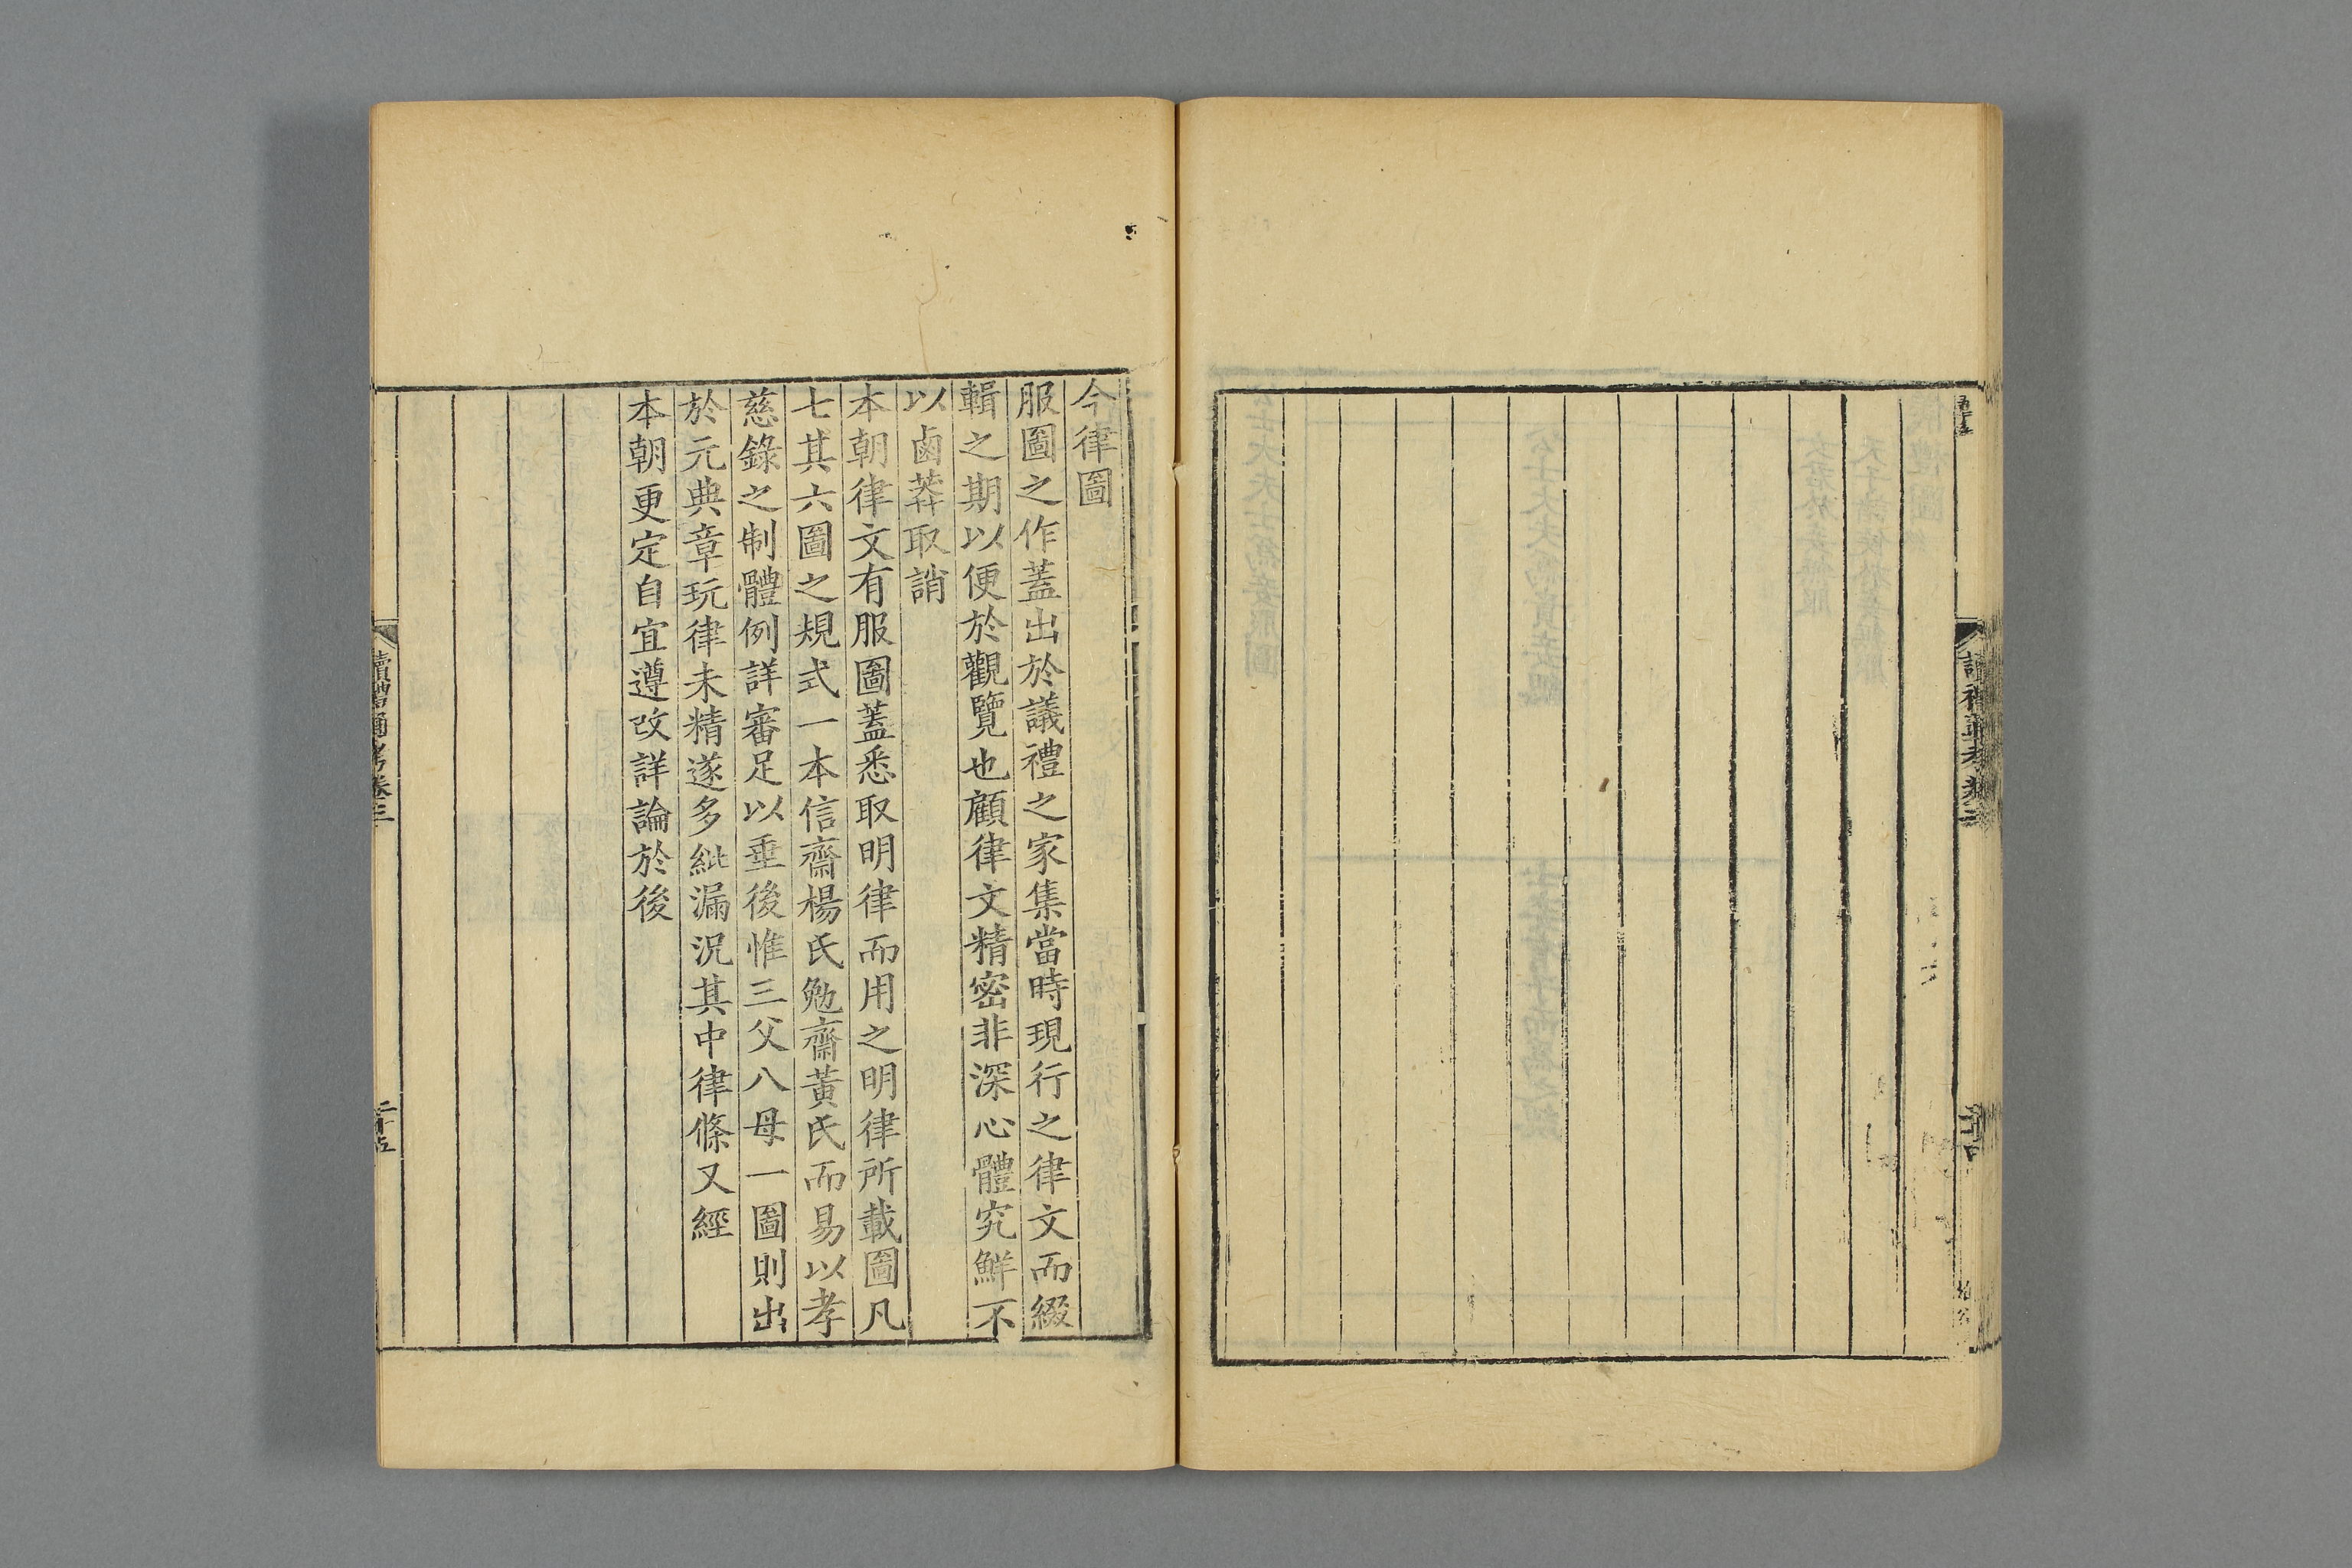 今律圖
服圖之作蓋出於議禮之家集當時現行之律文而綴
輯之期以便於觀覽也顧律文精密非深心體究鮮不
以鹵莽取誚
本朝律文有服圖蓋悉取明律而用之明律所載圖凡
七其六圖之規式一本信齋楊氏勉齋黃氏而易以孝
慈錄之制體例詳審足以垂後惟三父八母一圖則出
於元典章玩律未精遂多紕漏況其中律條又經
本朝更定自宜遵改詳論於後
讀禮通考卷三
二十五